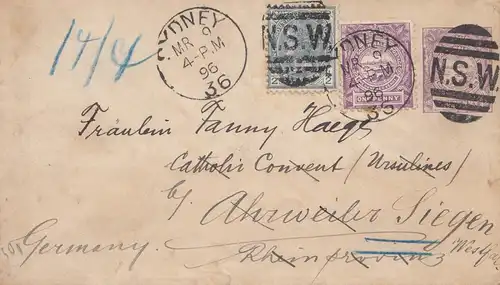 14/4
SYDNEY
MR 9
4-P.M
96
36
N.S.W.
SYDNEY
MR 9
4-P.M
96
ONE PENNY
N.S.W.
Fräulein Fanny
Catholic Convent (Ursulines)
Ahrweiler Siegen
Germany. Rheinprovinz